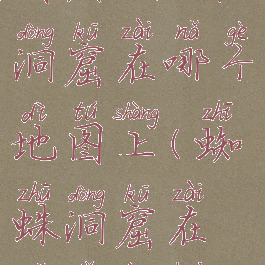 dòng kū zài nǎ gè
洞窟在哪个
dì tú shàng zhī
地图上(蜘
zhū dòng kū zài
蛛洞窟在